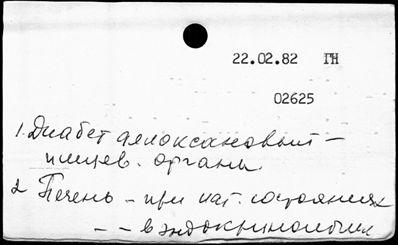 22.02.82 ГН
02625
1. Диабет аллоксановый –
пищев. органы.
2 Печень – при пат. состояниях
– – в эндокринологии